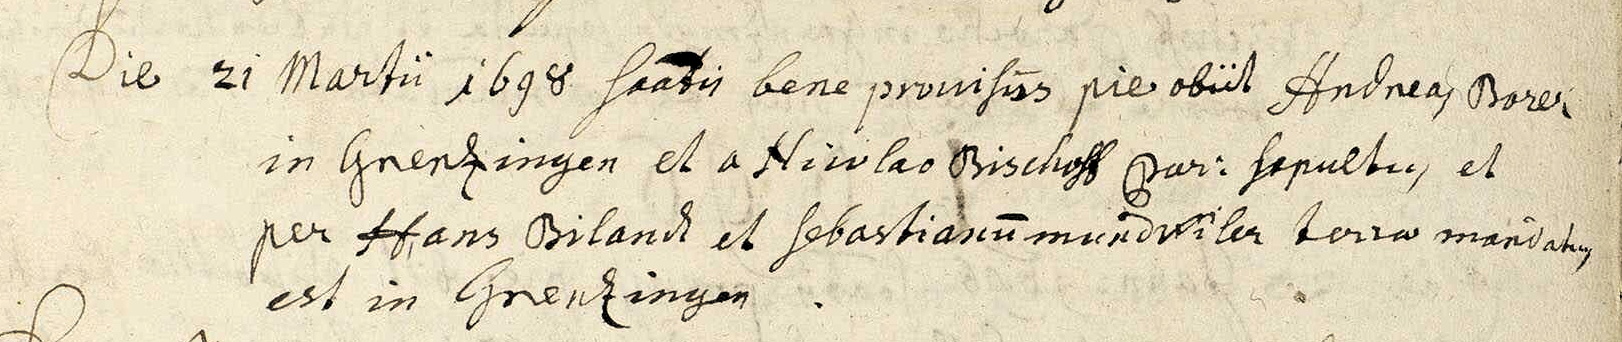 Die 21 Martii 1698 saatis bene provisus pie obiit Andreas Borer
in Grentzingen et a Nicolao Bischoff Par: sepultus, et
per Hans Bilandt et sebastianum mundwiler terrae mandatus
est in Grentzingen .